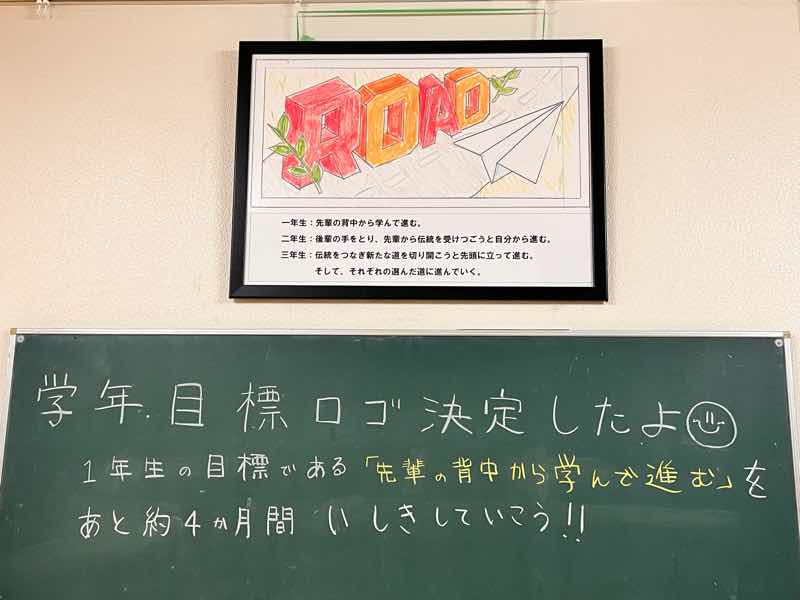 ROAD
一年生：先輩の背中から学んで進む。
二年生：後輩の手をとり、先輩から伝統を受けつごうと自分から進む。
三年生：伝統をつなぎ新たな道を切り開こうと先頭に立って進む。
そして、それぞれの選んだ道に進んでいく。
学年目標ロゴ決定したよ
1年生の目標である「先輩の背中から学んで進む」を
あと約4か月間 いしきしていこう!!